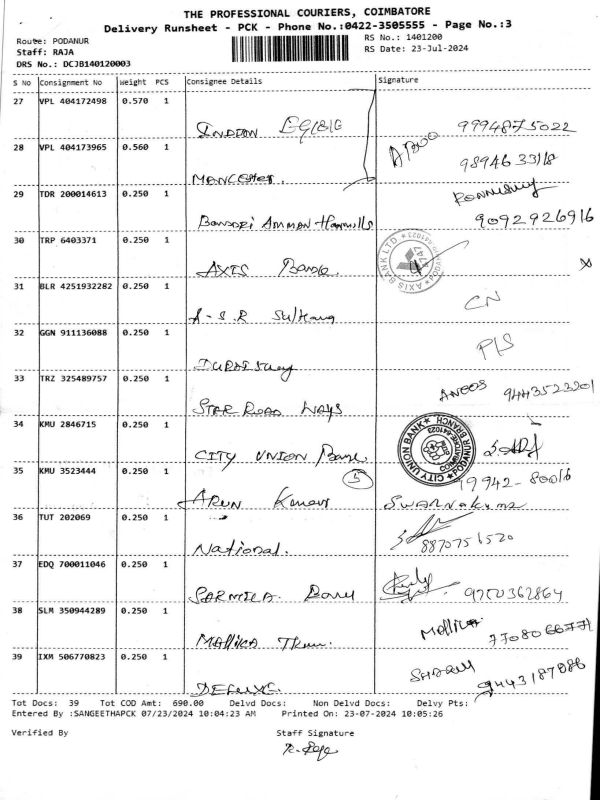 THE PROFESSIONAL COURIERS, COIMBATORE
Delivery Runsheet - PCK - Phone No.:0422-3505555 - Page No.:3
Route: PODANUR RS No.: 1401200
Staff: RAJA RS Date: 23-Jul-2024
DRS No.: DCJB140120003
S No Consignment No Weight PCS Consignee Details Signature
27 VPL 404172498 0.570 1
INDIAN 9994875022
28 VPL 404173965 0.560 1
MANCESTER. 9894633118
29 TDR 200014613 0.250 1
Bannari Amman 9092926916
30 TRP 6403371 0.250 1
AXIS Bank. AXIS BANK LTD PODANUR
31 BLR 4251932282 0.250 1
A-S.R CN
32 GGN 911136088 0.250 1
P/S
33 TRZ 325489757 0.250 1
STAR ROAD WAYS 9443523201
34 KMU 2846715 0.250 1
CITY UNION Bank. CITY UNION BANK PODANUR BRANCH COIMBATORE-641023
35 KMU 3523444 0.250 1
5 19942-80016
ARUN Kumar
36 TUT 202069 0.250 1
National. 8870751520
37 EDQ 700011046 0.250 1
SARMILA. 9750362864
38 SLM 350944289 0.250 1
Mallica Mallica 7708066771
39 IXM 506770823 0.250 1
DELUXE. 9443187086
Tot Docs: 39 Tot COD Amt: 690.00 Delvd Docs: Non Delvd Docs: Delvy Pts:
Entered By :SANGEETHAPCK 07/23/2024 10:04:23 AM Printed On: 23-07-2024 10:05:26
Verified By Staff Signature